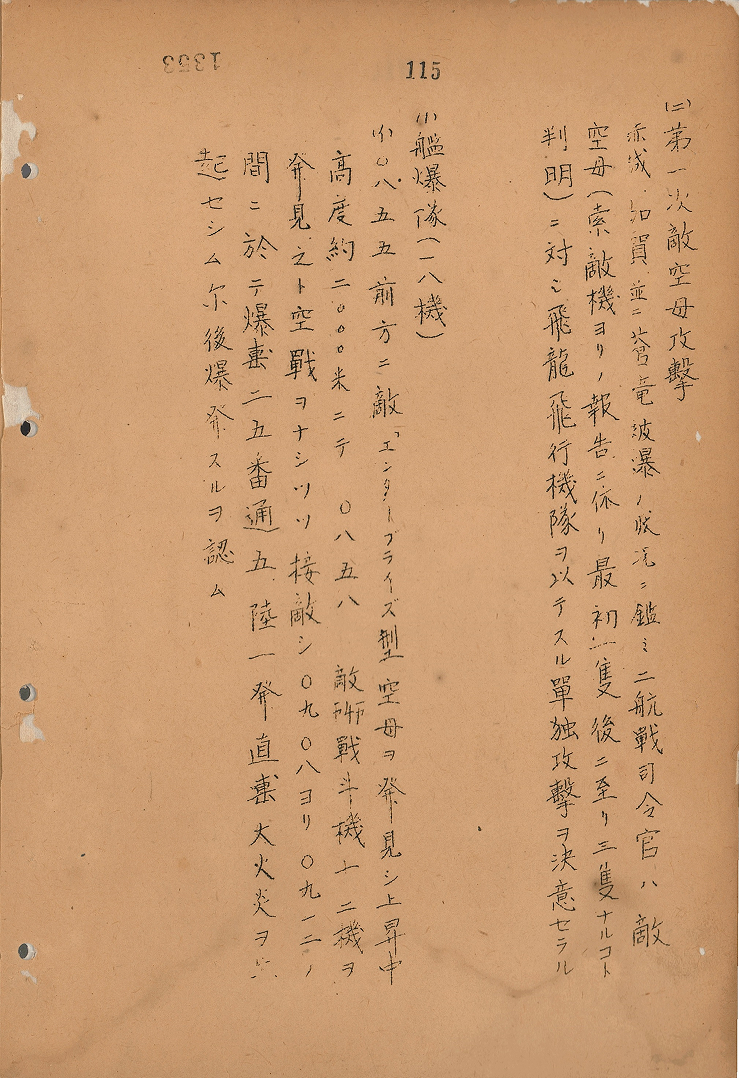 1353
115
(二)第一次敵空母攻撃
赤城、加賀、並ニ蒼竜被爆ノ状況ニ鑑ミ二航戦司令官ハ敵
空母(索敵機ヨリノ報告ニ依リ最初一隻後ニ至リ三隻ナルコト
判明)ニ対シ飛龍飛行機隊ヲ以テスル單独攻撃ヲ決意セラル
(1)艦爆隊(一八機)
(イ)〇八五五前方ニ敵「エンタープライズ型空母ヲ発見シ上昇中
高度約二〇〇〇米ニテ 〇八五八 敵 戦斗機十二機ヲ
発見之ト空戰ヲナシツツ接敵シ〇九〇八ヨリ〇九一二ノ
間ニ於テ爆撃二五番通五陸一発直撃大火炎ヲ
起セシム尓後爆発スルヲ認ム